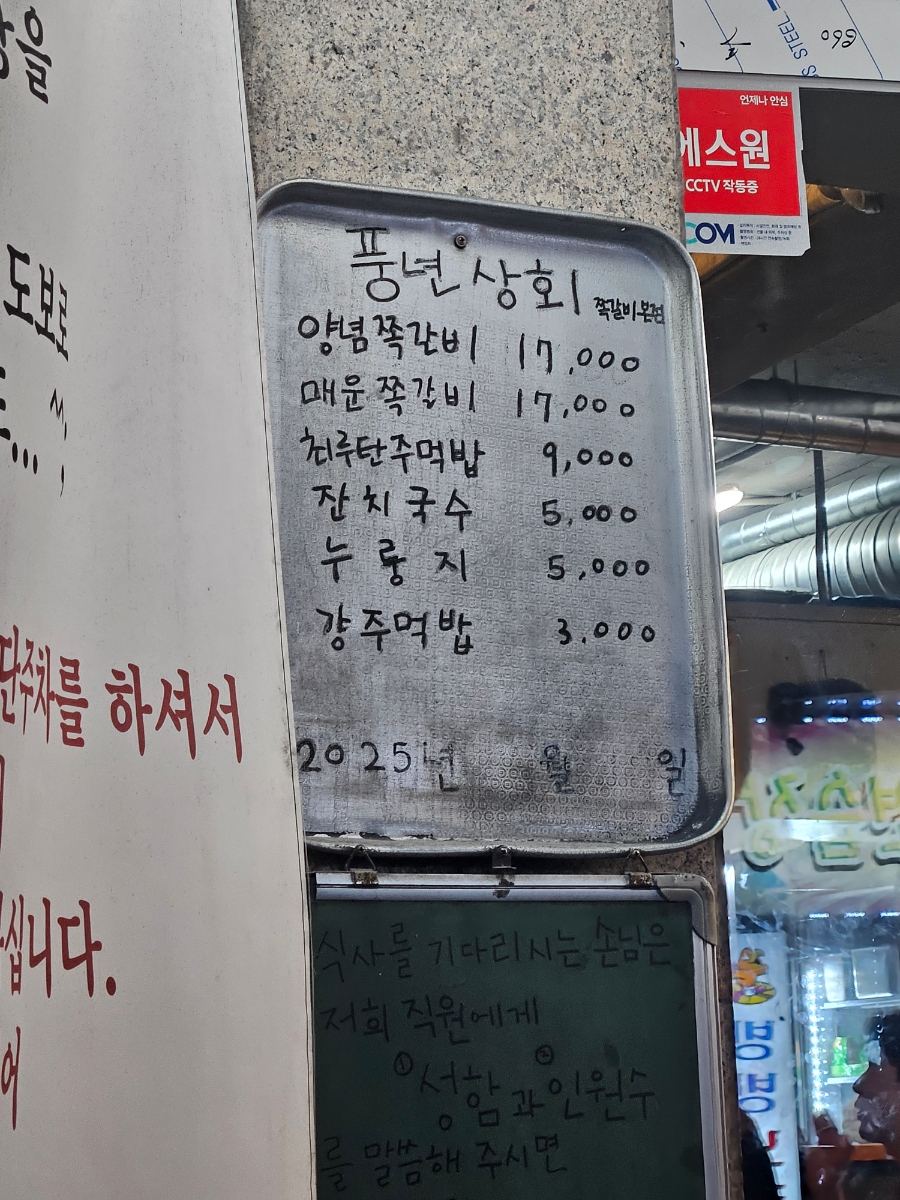 을
도보로
단주차를 하셔서
십니다.
어
풍년상회
쪽갈비본점
양념쪽갈비 17,000
매운쪽갈비 17,000
최루탄주먹밥 9,000
잔치국수 5,000
누룽지 5,000
걍주먹밥 3,000
2025년 월 일
식사를 기다리시는 손님은
저희 직원에게
①성함과 ②인원수
를 말씀해 주시면
언제나 안심
에스원
CCTV 작동중
COM
STEEL